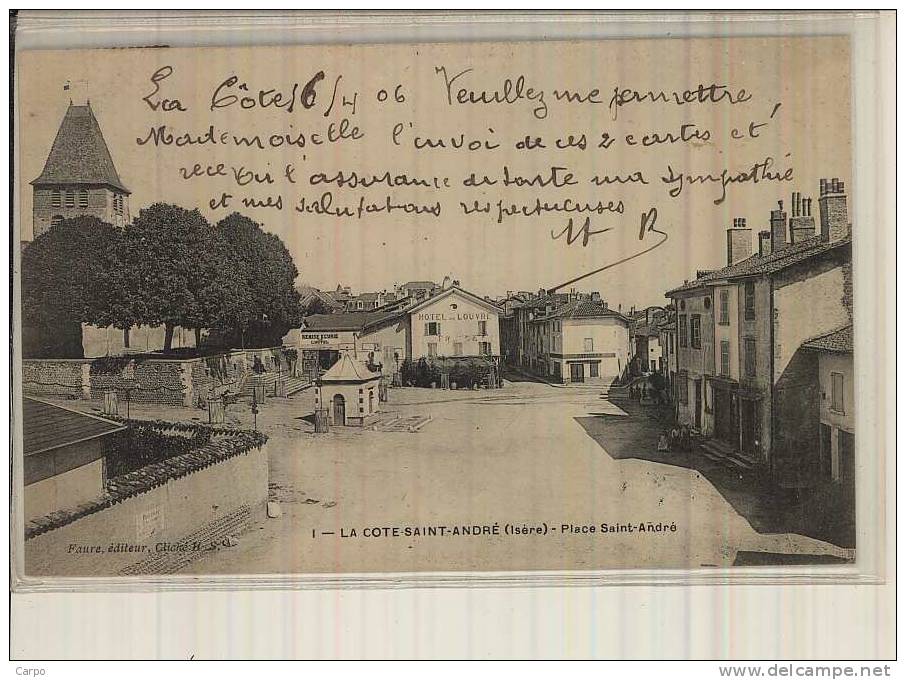 La Côte 16/4 06 Veuillez me permettre
Mademoiselle l'envoi de ces 2 cartes et
recevoir l'assurance de toute ma sympathie
et mes salutations respectueuses
HOTEL DU LOUVRE
REMISE ECURIE
1 — LA COTE-SAINT-ANDRÉ (Isère) - Place Saint-André
Faure, éditeur, Cliché
Carpo
http://www.delcampe.net